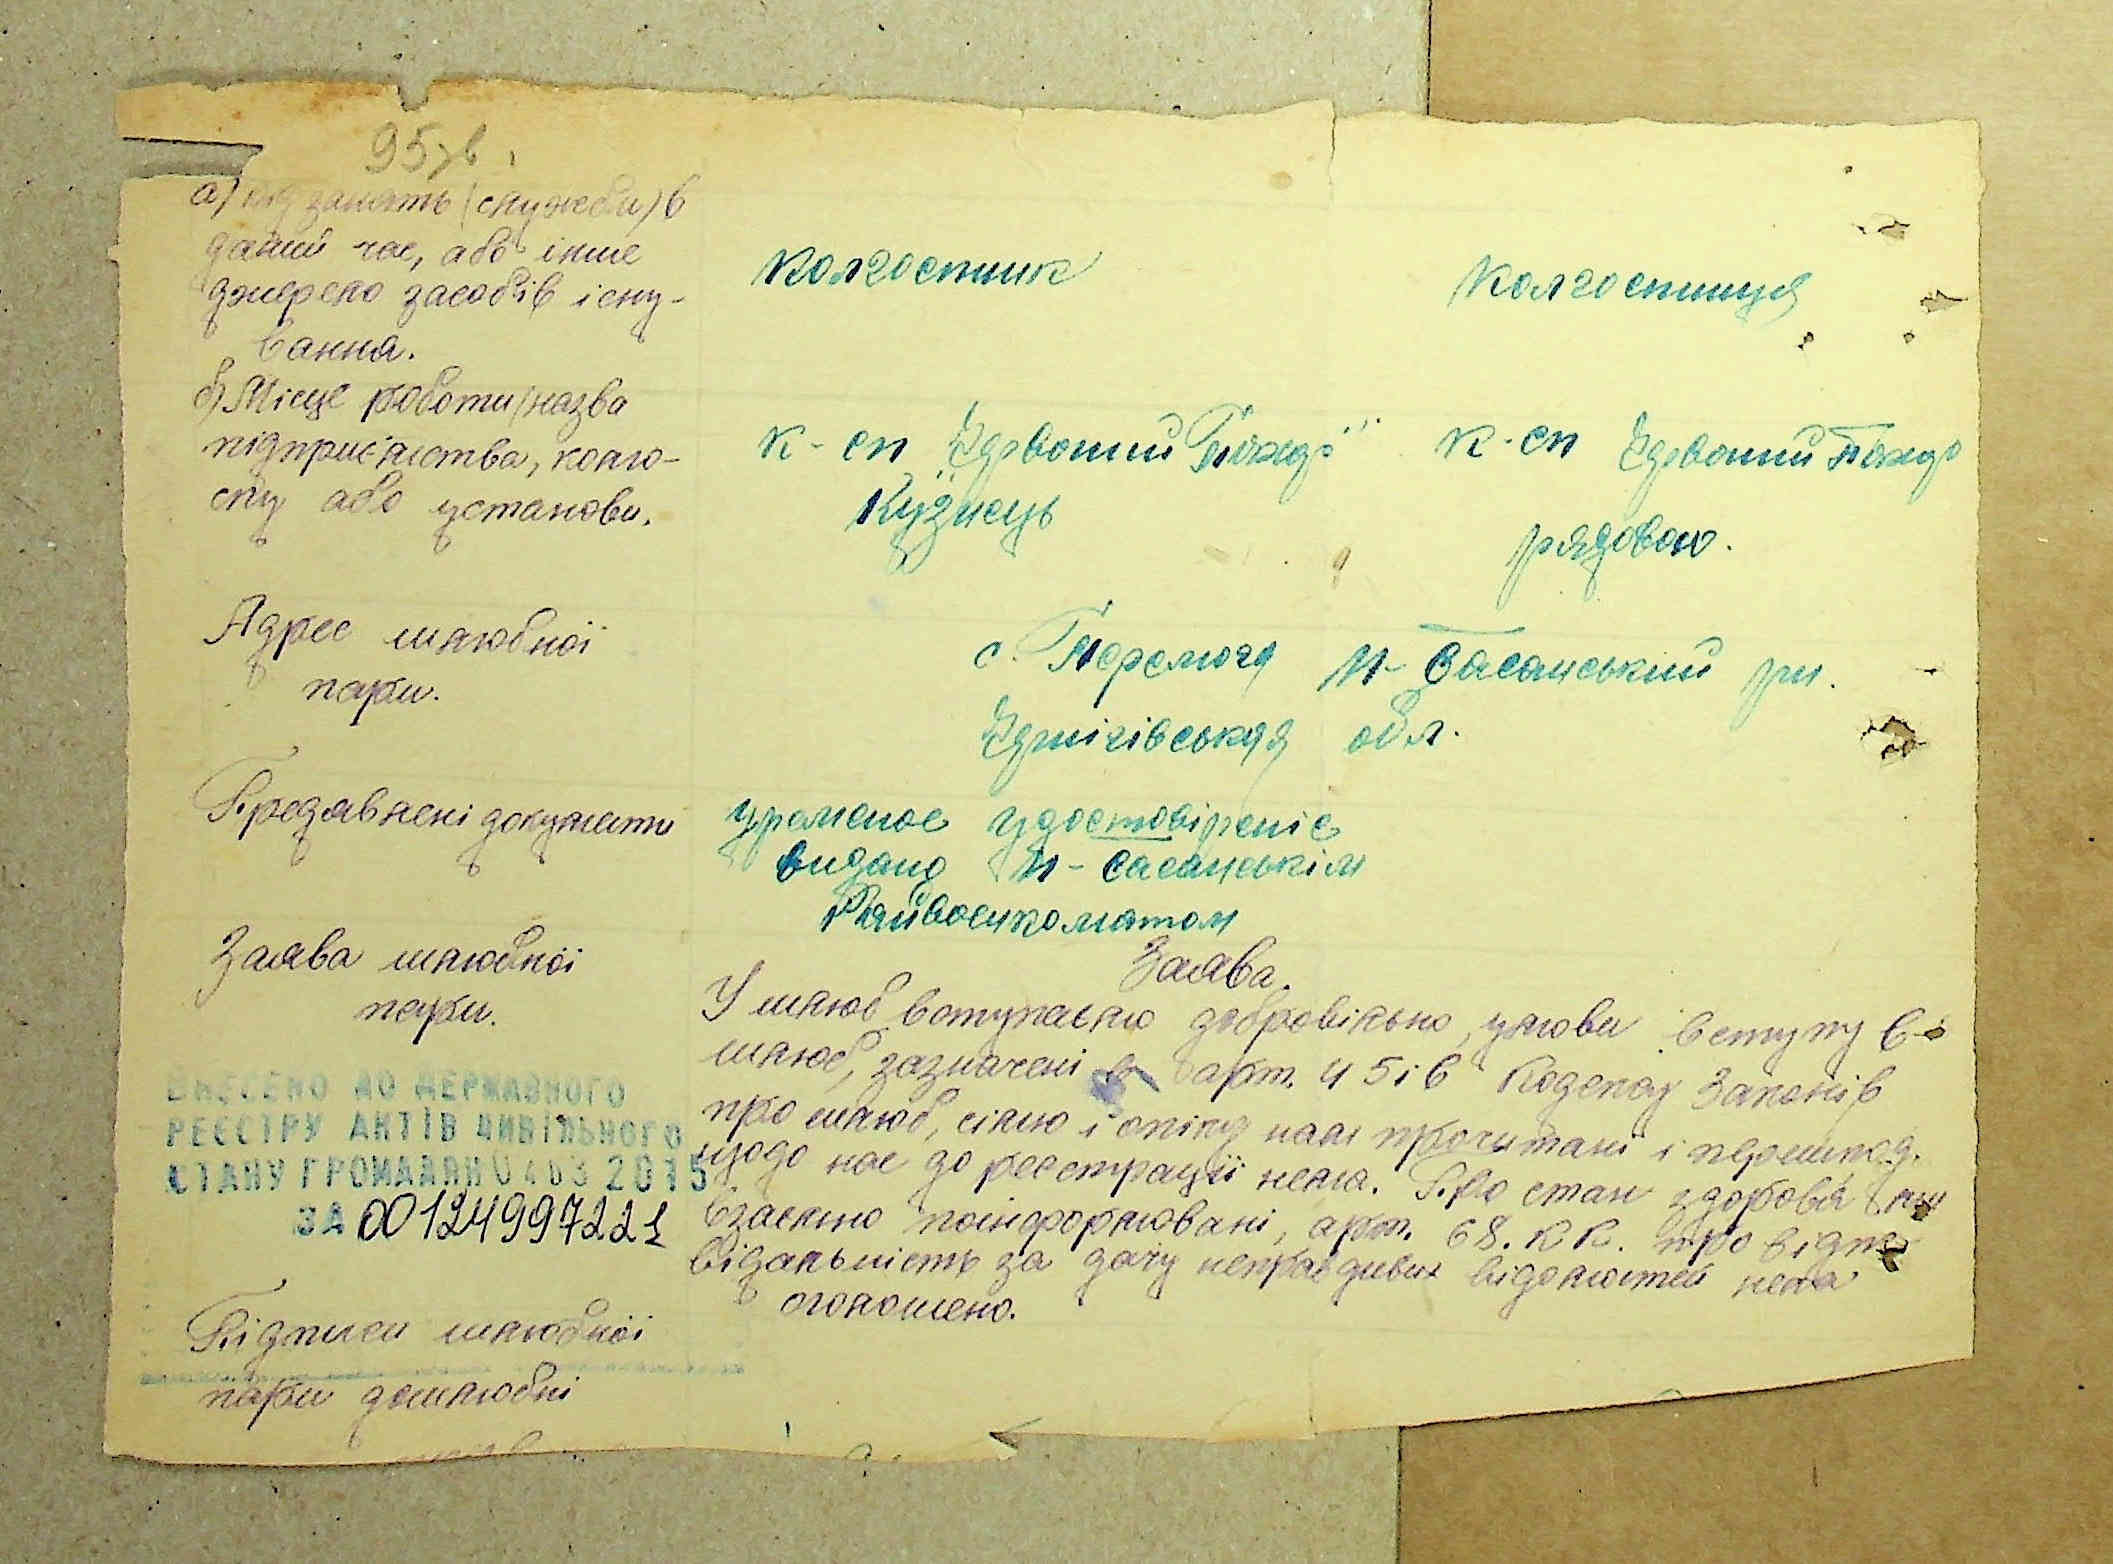 95 зв.
а) рід занять (служби) в
даний час, або інше
джерело засобів існу-
вання.
колгоспник
колгоспниця
б) Місце роботи (назва
підприємства, колго-
спу або установи.
к-сп Червоний Прапор
Кузнець
к-сп Червоний
рядовою.
Адрес шлюбної
пари.
с. Перемога Н-Басанський рн.
Чернігівська обл.
Предявлені документи
временое удостовіреніє
видано Н-Басанськім
Райвоенкоматом
Заява шлюбної
пари.
Заява.
У шлюб вступаємо добровільно, умови вступу в
шлюб, зазначені в арт. 4 5 і 6 Кодексу Законів
про шлюб, сімю і опіку нам прочитані і перешкод
щодо нас до реєстрації нема. Про стан здоровя ми
взаємно поінформовані, арт. 68. КК. про відпо-
відальність за дачу неправдивих відомостей нема
оголошено.
ВНЕСЕНО ДО ДЕРЖАВНОГО
РЕЄСТРУ АКТІВ ЦИВІЛЬНОГО
СТАНУ ГРОМАДЯН 04 03 2015
ЗА 00124997221
Підписи шлюбної
пари дошлюбні